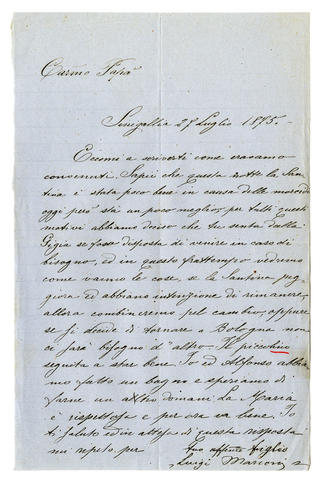 Carmo Papà
Senigallia 27 Luglio 1875.
Eccomi a scriverti come eravamo
convenuti. Sappi che questa notte la San-
tina è stata poco bene in causa delle
oggi però sta un poco meglio, per tutti questi
motivi abbiamo deciso che tu senta dalla
Gigia se fosse disposta di venire in caso di
bisogno, ed in questo frattempo vedremo
come vanno le cose, se la Santina peg-
giora ed abbiamo intenzione di rimanere,
allora combineremo pel cambio, oppure
se si decide di tornare a Bologna non
ci sarà bisogno d'altro. Il piccolino
seguita a star bene. Io ed Alfonso abbia-
mo fatto un bagno e speriamo di
farne un altro domani. La Maria
è rispettosa e per ora va bene. Io
ti saluto ed in attesa di questa risposta
mi repeto per
tuo affmo figlio
Luigi Marconi